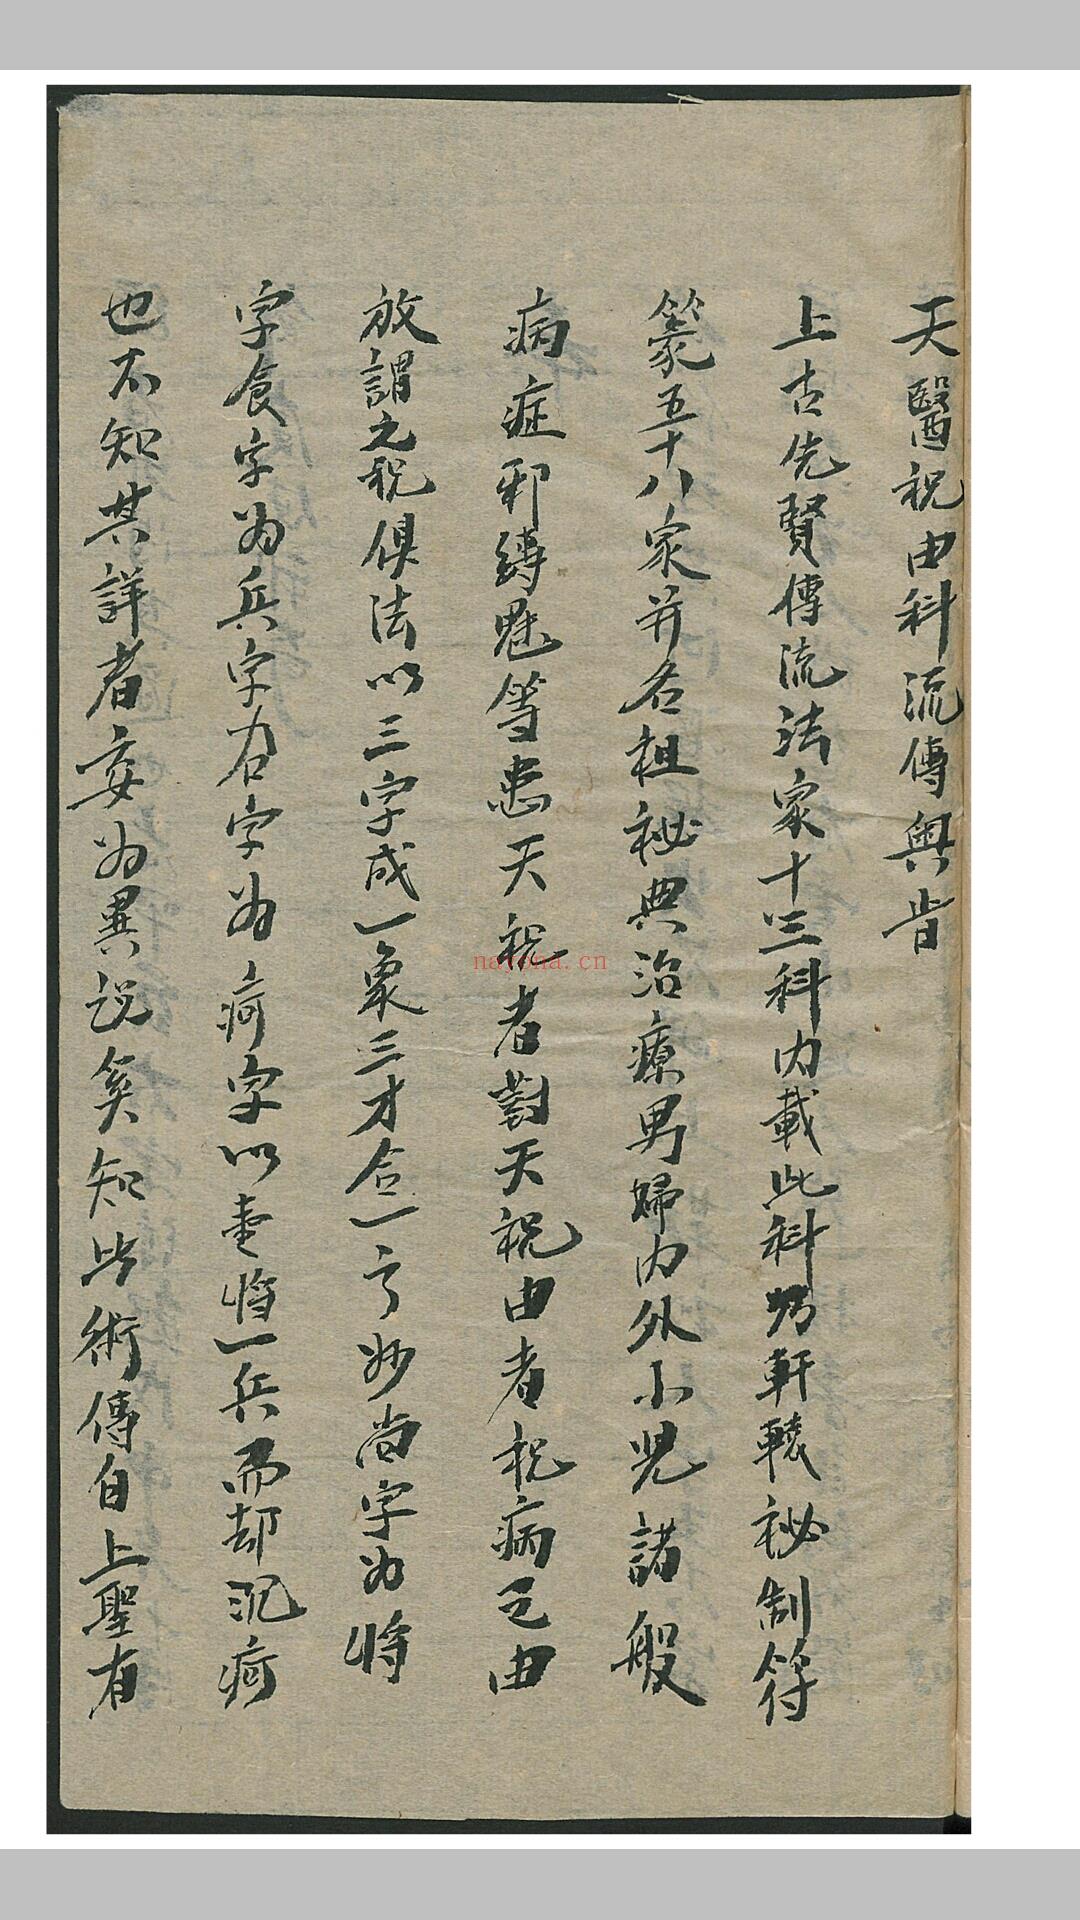 天醫祝由科流傳奧旨
上古先賢傳流法家十三科內載此科乃軒轅秘制符
篆五十八家并名祖秘典治療男婦內外小児諸般
病症邪縛魅等患天祝者對天祝由者祝病之由
放謂之祝俱法以三字成一象三才合一之妙尚字为將
字食字为兵字右字为疴字以壹將一兵而却沉疴
也不知其詳者妄为異說奚知此術傳自上聖有
nayona.cn